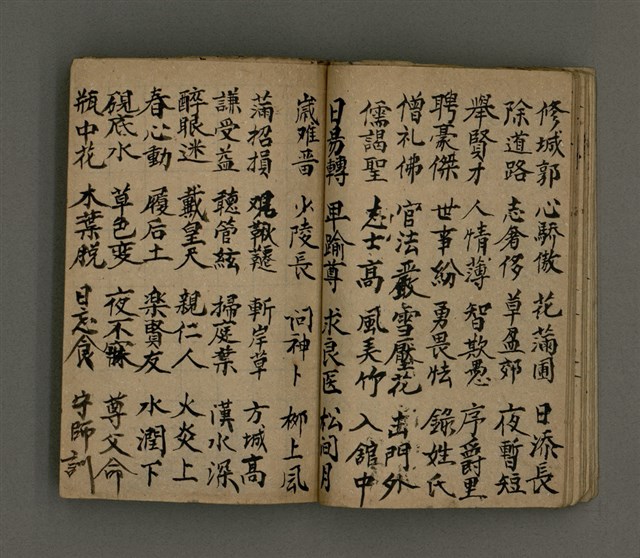 修城郭 心驕傲 花蒲圃 日添長
除道路 志奢侈 草盈郊 夜暫短
舉賢才 人情薄 智欺愚 序爵里
聘豪傑 世事紛 勇畏怯 錄姓氏
僧礼佛 官法嚴 雪壓花 出門外
儒謁聖 志士高 風美竹 入舘中
日易轉 卑踰尊 求良医 松间月
歲难畱 少陵長 问神卜 柳上風
蒲招損 觀鞦韆 斬岸草 方城高
謙受益 聽管絃 掃庭葉 漢水深
醉眼迷 戴皇天 親仁人 火炎上
春心動 履后土 楽賢友 水潤下
硯底水 草色变 夜不寐 尊父命
瓶中花 木葉脱 日忘食 守師訓